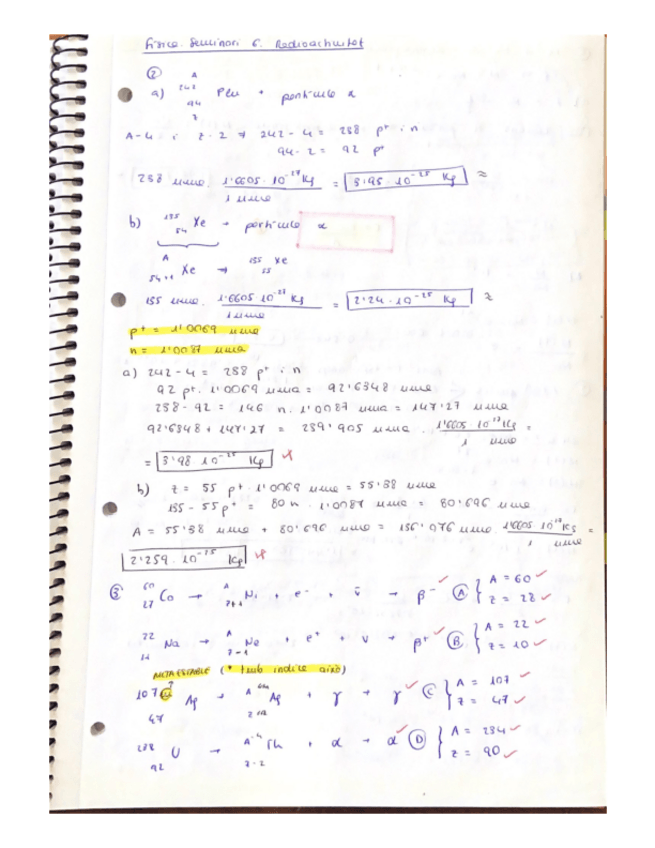 Física. Seminari 6. Radioactivitat
②
a) A 242 94 Z Pu + partícula α
A-4 ; Z-2 → 242 - 4 = 238 p⁺ i n
94 - 2 = 92 p⁺
238 uma · 1'6605·10⁻²⁷ Kg / 1 uma = 3'95·10⁻²⁵ Kg ≈
b) 135 54 Xe → partícula α
A 54+1 Xe → 135 55 Xe
135 uma · 1'6605·10⁻²⁷ Kg / 1 uma = 2'24·10⁻²⁵ Kg ≈
p⁺ = 1'0069 uma
n = 1'0087 uma
a) 242 - 4 = 238 p⁺ i n
92 p⁺ · 1'0069 uma = 92'6348 uma
238 - 92 = 146 n · 1'0087 uma = 147'27 uma
92'6348 + 147'27 = 239'905 uma · 1'6605·10⁻²⁷ Kg / 1 uma =
= 3'98·10⁻²⁵ Kg
b) Z = 55 p⁺ · 1'0069 uma = 55'38 uma
135 - 55 p⁺ = 80 n · 1'0087 uma = 80'696 uma
A = 55'38 uma + 80'696 uma = 136'076 uma · 1'6605·10⁻²⁷ Kg / 1 uma =
2'259·10⁻²⁵ Kg
③ 60 27 Co → A Z+1 Ni + e⁻ + v̄ → β⁻ Ⓐ { A = 60 Z = 28
22 11 Na → A Z-1 Ne + e⁺ + v → β⁺ Ⓑ { A = 22 Z = 10
METAESTABLE (* amb índice això)
107m 47 Ag → A Z Ag + γ → γ Ⓒ { A = 107 Z = 47
238 92 U → A-4 Z-2 Th + α → α Ⓓ { A = 234 Z = 90